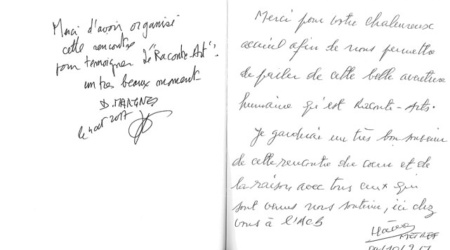 Merci d'avoir organisé
cette rencontre
pour témoigner d'"Racont-Art".
un très beaux moment
le 4 oct 2017
Merci pour votre chaleureux
accueil afin de nous permettre
de parler de cette belle aventure
humaine qu'est Raconte-Arts.
Je garderai un très bon souvenir
de cette rencontre du cœur et de
la raison avec tous ceux qui
sont venus nous soutenir, ici chez
vous à l'ACB